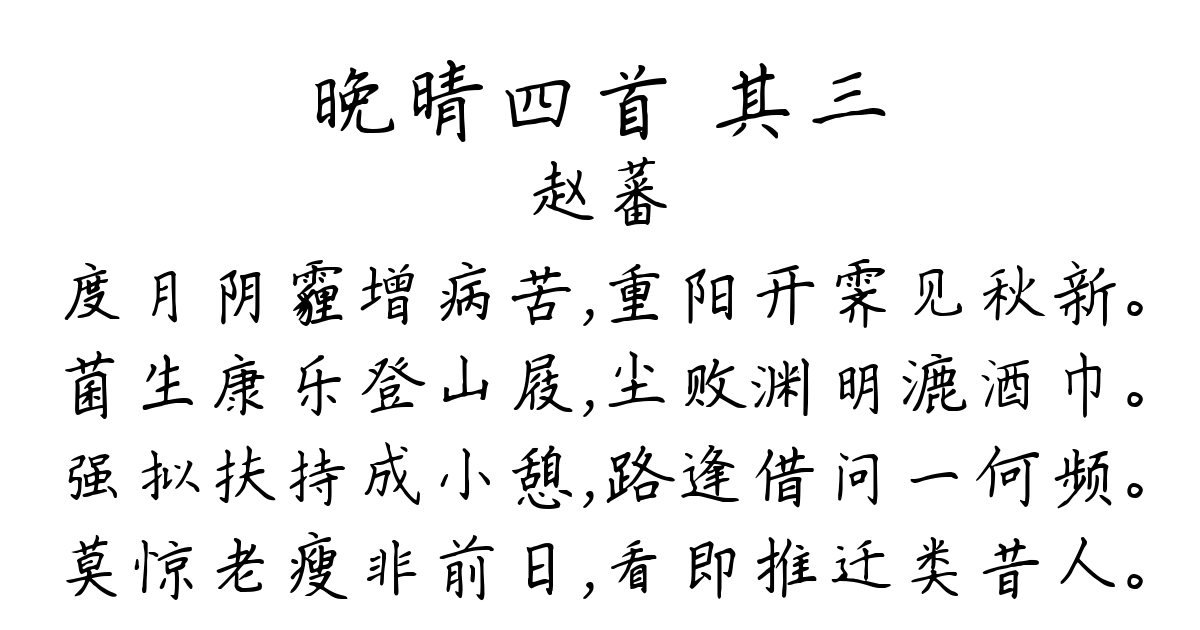 晚晴四首 其三
赵蕃
度月阴霾增病苦,重阳开霁见秋新。
菌生康乐登山屐,尘败渊明漉酒巾。
强拟扶持成小憩,路逢借问一何频。
莫惊老瘦非前日,看即推迁类昔人。